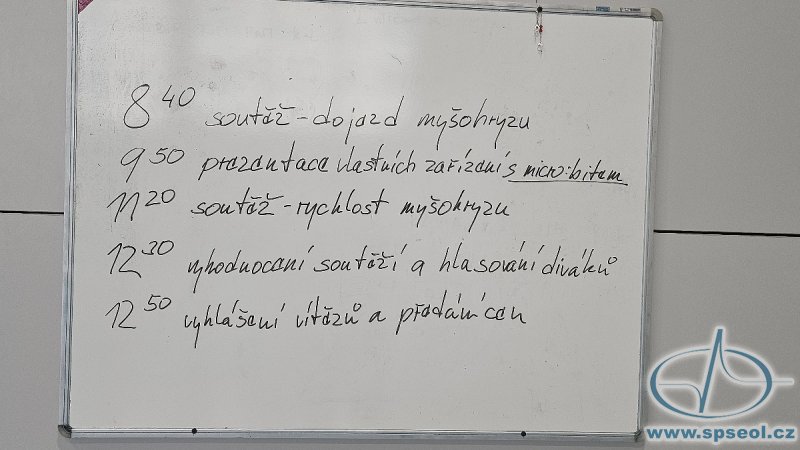 8 40 soutěž - dojezd myšohryzu
9 50 prezentace vlastních zařízení s micro:bitem
11 20 soutěž - rychlost myšohryzu
12 30 vyhodnocení soutěží a hlasování diváků
12 50 vyhlášení vítězů a předání cen
www.spseol.cz